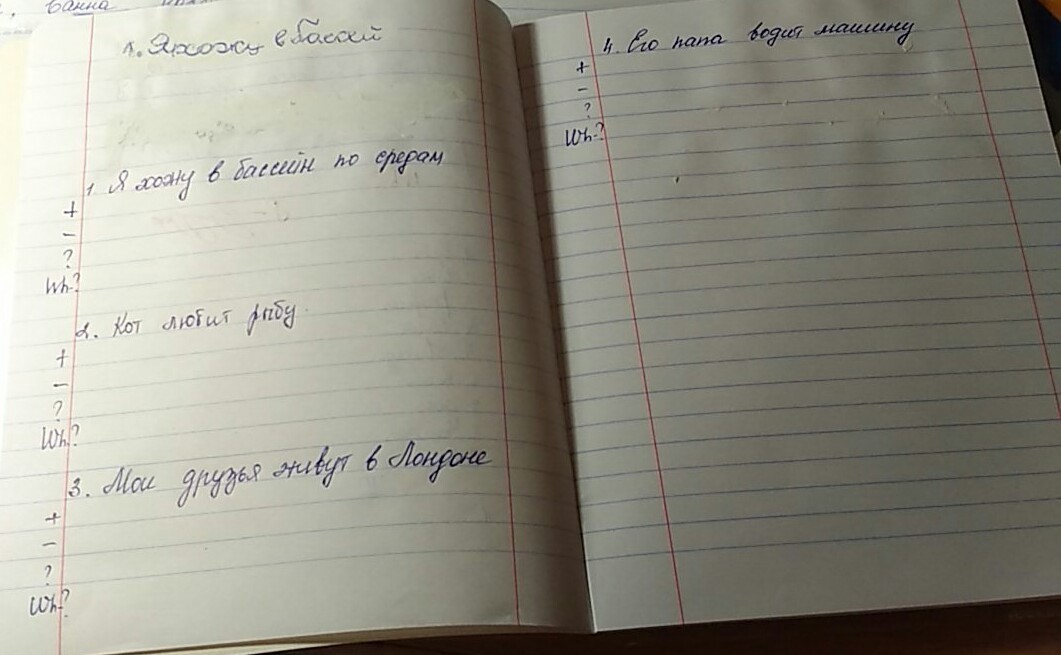 Ванна
1. Я хожу в бассей
1. Я хожу в бассейн по средам
+
-
?
Wh-?
2. Кот любит рыбу
+
-
?
Wh-?
3. Мои друзья живут в Лондоне
+
-
?
Wh-?
4. Его папа водит машину
+
-
?
Wh-?